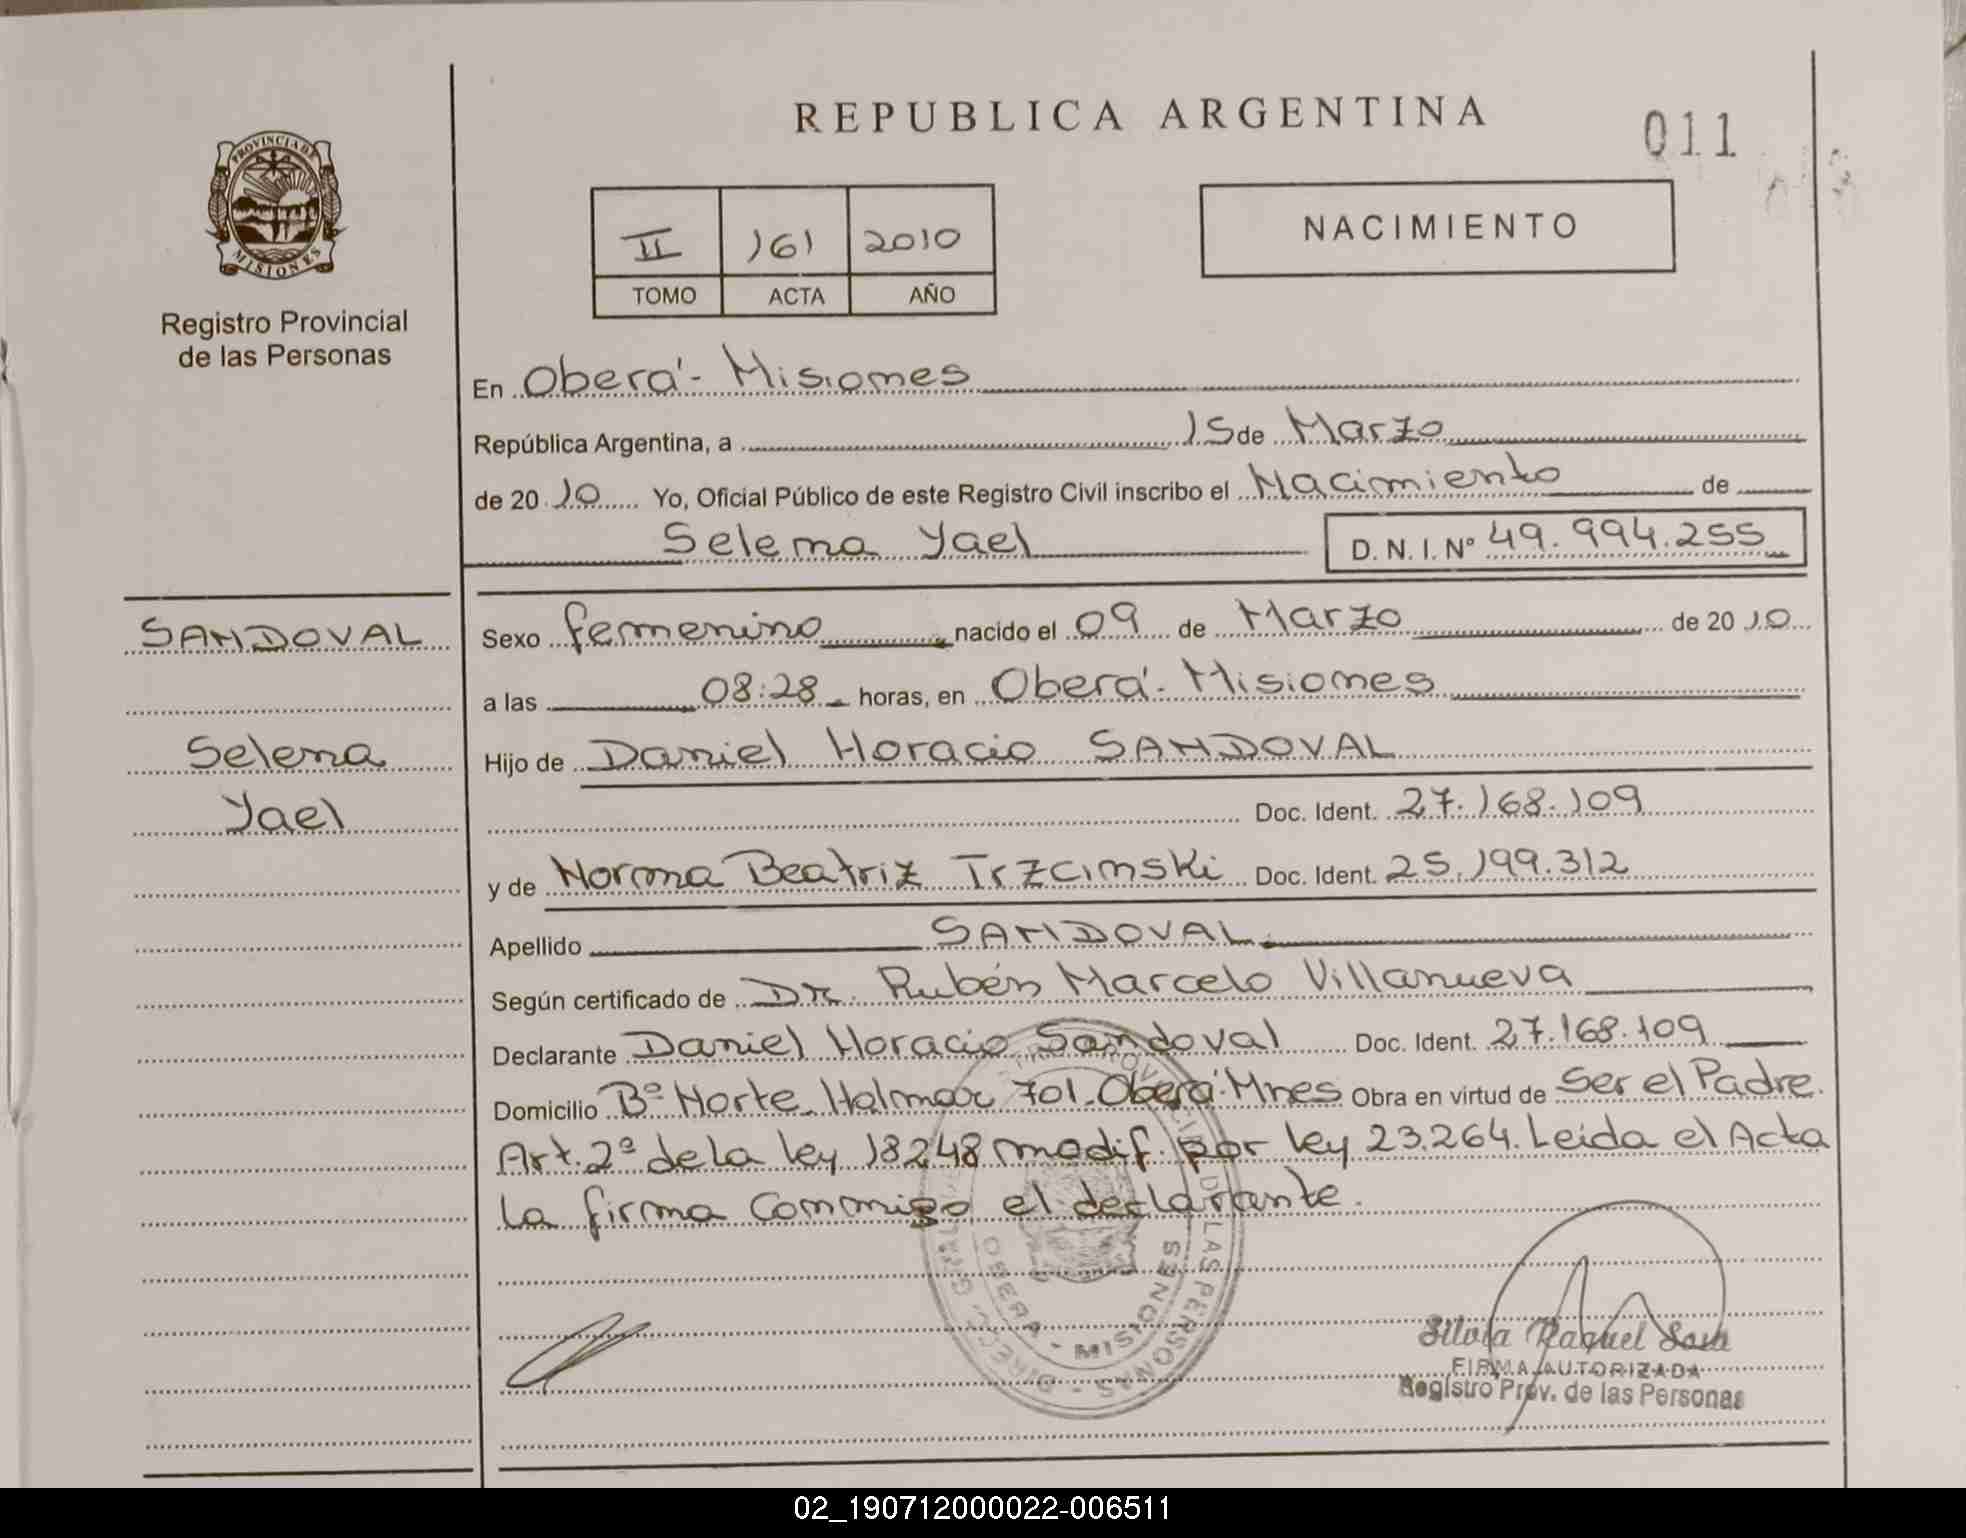 REPUBLICA ARGENTINA
011
PROVINCIA DE
MISIONES
Registro Provincial
de las Personas
NACIMIENTO
II 161 2010
TOMO ACTA AÑO
En Oberá - Misiones
República Argentina, a 15 de Marzo
de 20 10 Yo, Oficial Público de este Registro Civil inscribo el Nacimiento de
Selena Yael D. N. I. Nº 49.994.255
SANDOVAL
Selena
Yael
Sexo femenino nacido el 09 de Marzo de 20 10
a las 08:28 horas, en Oberá - Misiones
Hijo de Daniel Horacio SANDOVAL
Doc. Ident. 27.168.109
y de Norma Beatriz Trzcinski Doc. Ident. 25.199.312
Apellido SANDOVAL
Según certificado de Dr. Rubén Marcelo Villanueva
Declarante Daniel Horacio Sandoval Doc. Ident. 27.168.109
Domicilio Bº Norte. Halmar 701. Oberá. Mnes Obra en virtud de Ser el Padre.
Art. 2º de la ley 18248 modif. por ley 23.264. Leida el Acta
La firma Conmigo el declarante.
LAS PERSONAS
OBERA - MISIONES
Silvia Raquel Sosa
FIRMA AUTORIZADA
Registro Prov. de las Personas
02_190712000022-006511